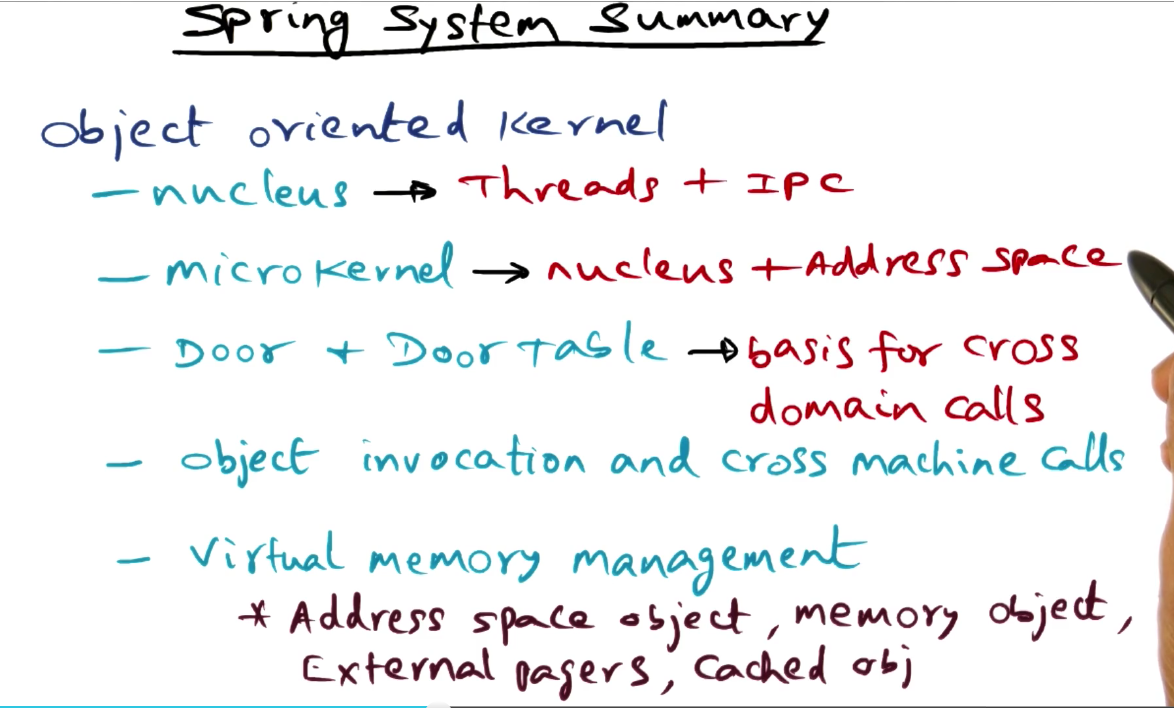 Spring System Summary
Object oriented Kernel
- nucleus → Threads + IPC
- microkernel → nucleus + Address space
- Door + Door Table → basis for cross
domain calls
- object invocation and cross machine calls
- Virtual memory management
* Address space object, memory object,
External pagers, Cached obj